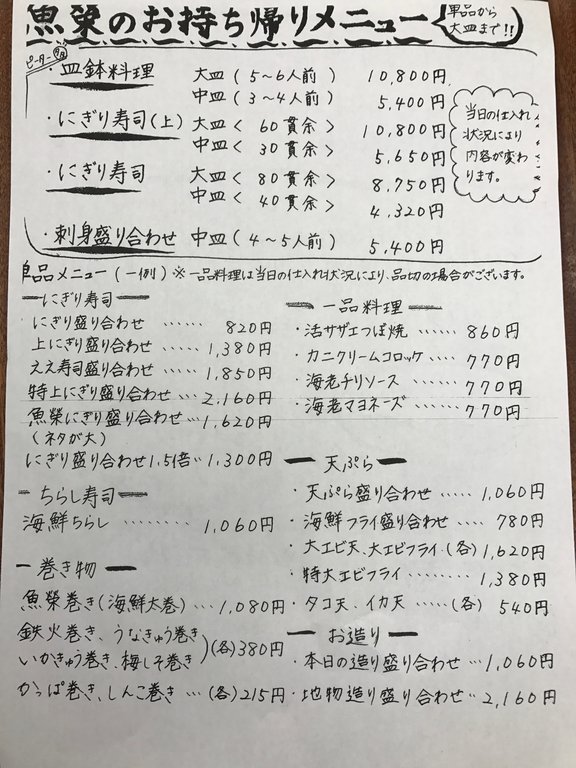 魚榮のお持ち帰りメニュー
単品から
大皿まで!!
・皿鉢料理 大皿(5～6人前) 10,800円
中皿(3～4人前) 5,400円
・にぎり寿司(上) 大皿< 60貫余> 10,800円
中皿< 30貫余> 5,650円
・にぎり寿司 大皿< 80貫余> 8,750円
中皿< 40貫余> 4,320円
・刺身盛り合わせ 中皿(4～5人前) 5,400円
当日の仕入れ
状況により
内容が変わ
ります。
単品メニュー(一例)※一品料理は当日の仕入れ状況により、品切の場合がございます。
にぎり寿司
にぎり盛り合わせ …… 820円
上にぎり盛り合わせ … 1,380円
ええ寿司盛り合わせ … 1,850円
特上にぎり盛り合わせ … 2,160円
魚榮にぎり盛り合わせ … 1,620円
(ネタが大)
にぎり盛り合わせ1.5倍‥1,300円
ちらし寿司
海鮮ちらし ……… 1,060円
巻き物
魚榮巻き(海鮮太巻)… 1,080円
鉄火巻き、うなきゅう巻き
いかきゅう巻き、梅しそ巻き )(各)380円
かっぱ巻き、しんこ巻き …(各)215円
一品料理
・活サザエつぼ焼 …… 860円
・カニクリームコロッケ …… 770円
・海老チリソース …… 770円
・海老マヨネーズ …… 770円
天ぷら
・天ぷら盛り合わせ …… 1,060円
・海鮮フライ盛り合わせ … 780円
・大エビ天、大エビフライ(各)1,620円
・特大エビフライ …… 1,380円
・タコ天、イカ天 ……(各) 540円
お造り
・本日の造り盛り合わせ … 1,060円
・地物造り盛り合わせ‥ 2,160円